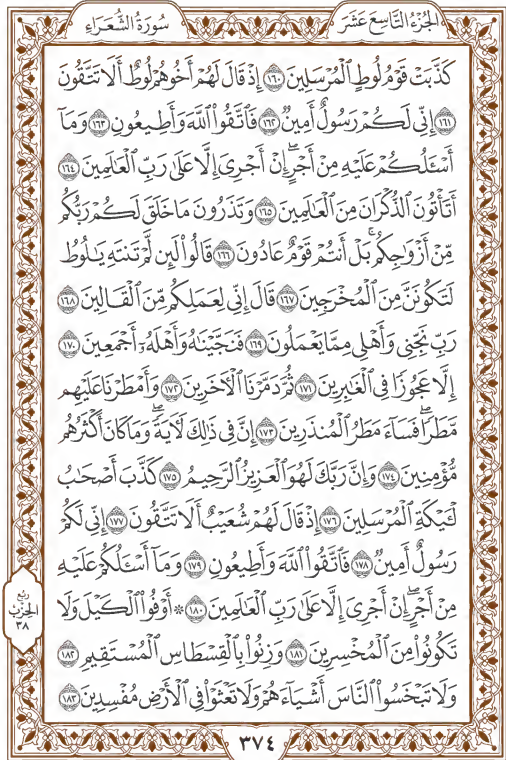 الجُزْءُ التَّاسِعَ عَشَرَ
سُورَةُ الشُّعَرَاءِ
كَذَّبَتْ قَوْمُ لُوطٍ الْمُرْسَلِينَ ١٦٠ إِذْ قَالَ لَهُمْ أَخُوهُمْ لُوطٌ أَلَا تَتَّقُونَ
١٦١ إِنِّي لَكُمْ رَسُولٌ أَمِينٌ ١٦٢ فَاتَّقُوا اللَّهَ وَأَطِيعُونِ ١٦٣ وَمَآ
أَسْـَٔلُكُمْ عَلَيْهِ مِنْ أَجْرٍ ۖ إِنْ أَجْرِىَ إِلَّا عَلَىٰ رَبِّ الْعَٰلَمِينَ ١٦٤
أَتَأْتُونَ الذُّكْرَانَ مِنَ الْعَٰلَمِينَ ١٦٥ وَتَذَرُونَ مَا خَلَقَ لَكُمْ رَبُّكُم
مِّنْ أَزْوَٰجِكُم ۚ بَلْ أَنتُمْ قَوْمٌ عَادُونَ ١٦٦ قَالُوا لَئِن لَّمْ تَنتَهِ يَٰلُوطُ
لَتَكُونَنَّ مِنَ الْمُخْرَجِينَ ١٦٧ قَالَ إِنِّي لِعَمَلِكُم مِّنَ الْقَالِينَ ١٦٨
رَبِّ نَجِّنِي وَأَهْلِي مِمَّا يَعْمَلُونَ ١٦٩ فَنَجَّيْنَٰهُ وَأَهْلَهُۥٓ أَجْمَعِينَ ١٧٠
إِلَّا عَجُوزًا فِي الْغَٰبِرِينَ ١٧١ ثُمَّ دَمَّرْنَا الْـَٔاخَرِينَ ١٧٢ وَأَمْطَرْنَا عَلَيْهِم
مَّطَرًا ۖ فَسَآءَ مَطَرُ الْمُنذَرِينَ ١٧٣ إِنَّ فِي ذَٰلِكَ لَـَٔايَةً ۖ وَمَا كَانَ أَكْثَرُهُم
مُّؤْمِنِينَ ١٧٤ وَإِنَّ رَبَّكَ لَهُوَ الْعَزِيزُ الرَّحِيمُ ١٧٥ كَذَّبَ أَصْحَٰبُ
لْـَٔيْكَةِ الْمُرْسَلِينَ ١٧٦ إِذْ قَالَ لَهُمْ شُعَيْبٌ أَلَا تَتَّقُونَ ١٧٧ إِنِّي لَكُمْ
رَسُولٌ أَمِينٌ ١٧٨ فَاتَّقُوا اللَّهَ وَأَطِيعُونِ ١٧٩ وَمَآ أَسْـَٔلُكُمْ عَلَيْهِ
مِنْ أَجْرٍ ۖ إِنْ أَجْرِىَ إِلَّا عَلَىٰ رَبِّ الْعَٰلَمِينَ ١٨٠ ۞ أَوْفُوا الْكَيْلَ وَلَا
تَكُونُوا مِنَ الْمُخْسِرِينَ ١٨١ وَزِنُوا بِالْقِسْطَاسِ الْمُسْتَقِيمِ ١٨٢
وَلَا تَبْخَسُوا النَّاسَ أَشْيَآءَهُمْ وَلَا تَعْثَوْا فِي الْأَرْضِ مُفْسِدِينَ ١٨٣
ربع
الحزب
٣٨
٣٧٤